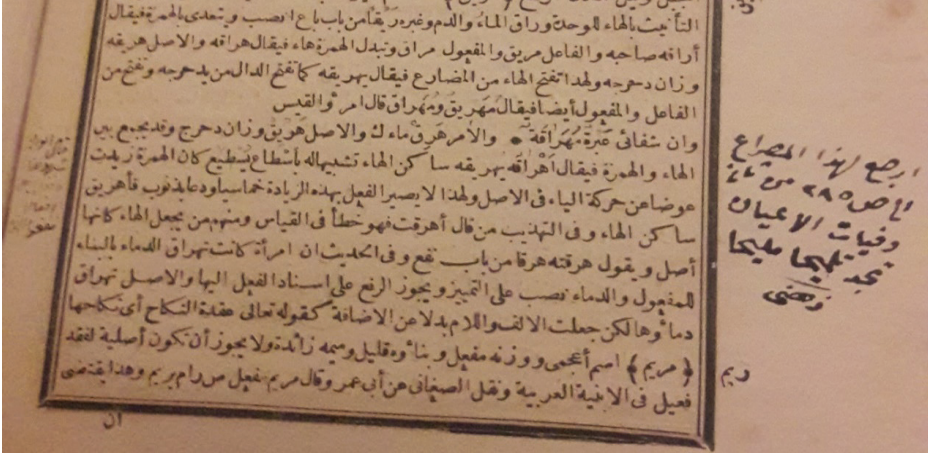 التأنيث بالهاء للوحدة وراق الماء والدم وغيره ريقا من باب باع انصب ويتعدى بالهمزة فيقال
أراقه صاحبه والفاعل مريق والمفعول مراق وتبدل الهمزة هاء فيقال هراقه والاصل هريقه
وزان دحرجه ولهذا تفتح الهاء من المضارع فيقال يهريقه كما تفتح الدال من يدحرجه وتفتح من
الفاعل والمفعول أيضا فيقال مهريق ومهراق قال امرؤ القيس
وان شفائى عبرة مهراقة * والأمر هرق ماءك والاصل هريق وزان دحرج وقد يجمع بين
الهاء والهمزة فيقال اهراقه يهريقه ساكن الهاء تشبيها له بأسطاع يسطيع كان الهمزة زيدت
عوضا عن حركة الياء فى الاصل ولهذا لا يصير الفعل بهذه الزيادة خماسيا ودعا بذنوب فأهريق
ساكن الهاء وفى التهذيب من قال أهرقت فهو خطأ فى القياس ومنهم من يجعل الهاء كانها
أصل ويقول هرقته هرقا من باب نفع وفى الحديث ان امرأة كانت تهراق الدماء بالبناء
للمفعول والدماء نصب على التمييز ويجوز الرفع على اسناد الفعل اليها والاصل تهراق
دماؤها لكن جعلت الالف واللام بدلا عن الاضافة كقوله تعالى عقدة النكاح أى نكاحها
﴿مريم﴾ اسم أعجمى ووزنه مفعل وبناؤه قليل وميمه زائدة ولا يجوز أن تكون أصلية لفقد
فعيل فى الابنية العربية ونقل الصغانى عن أبى عمر وقال مريم مفعل من رام يريم وهذا يقتضى
ان
ارجع لهذا المصراع
ص ٢٨٥ من
وفيات الاعيان
تجد تلميحا مليحا
ريم